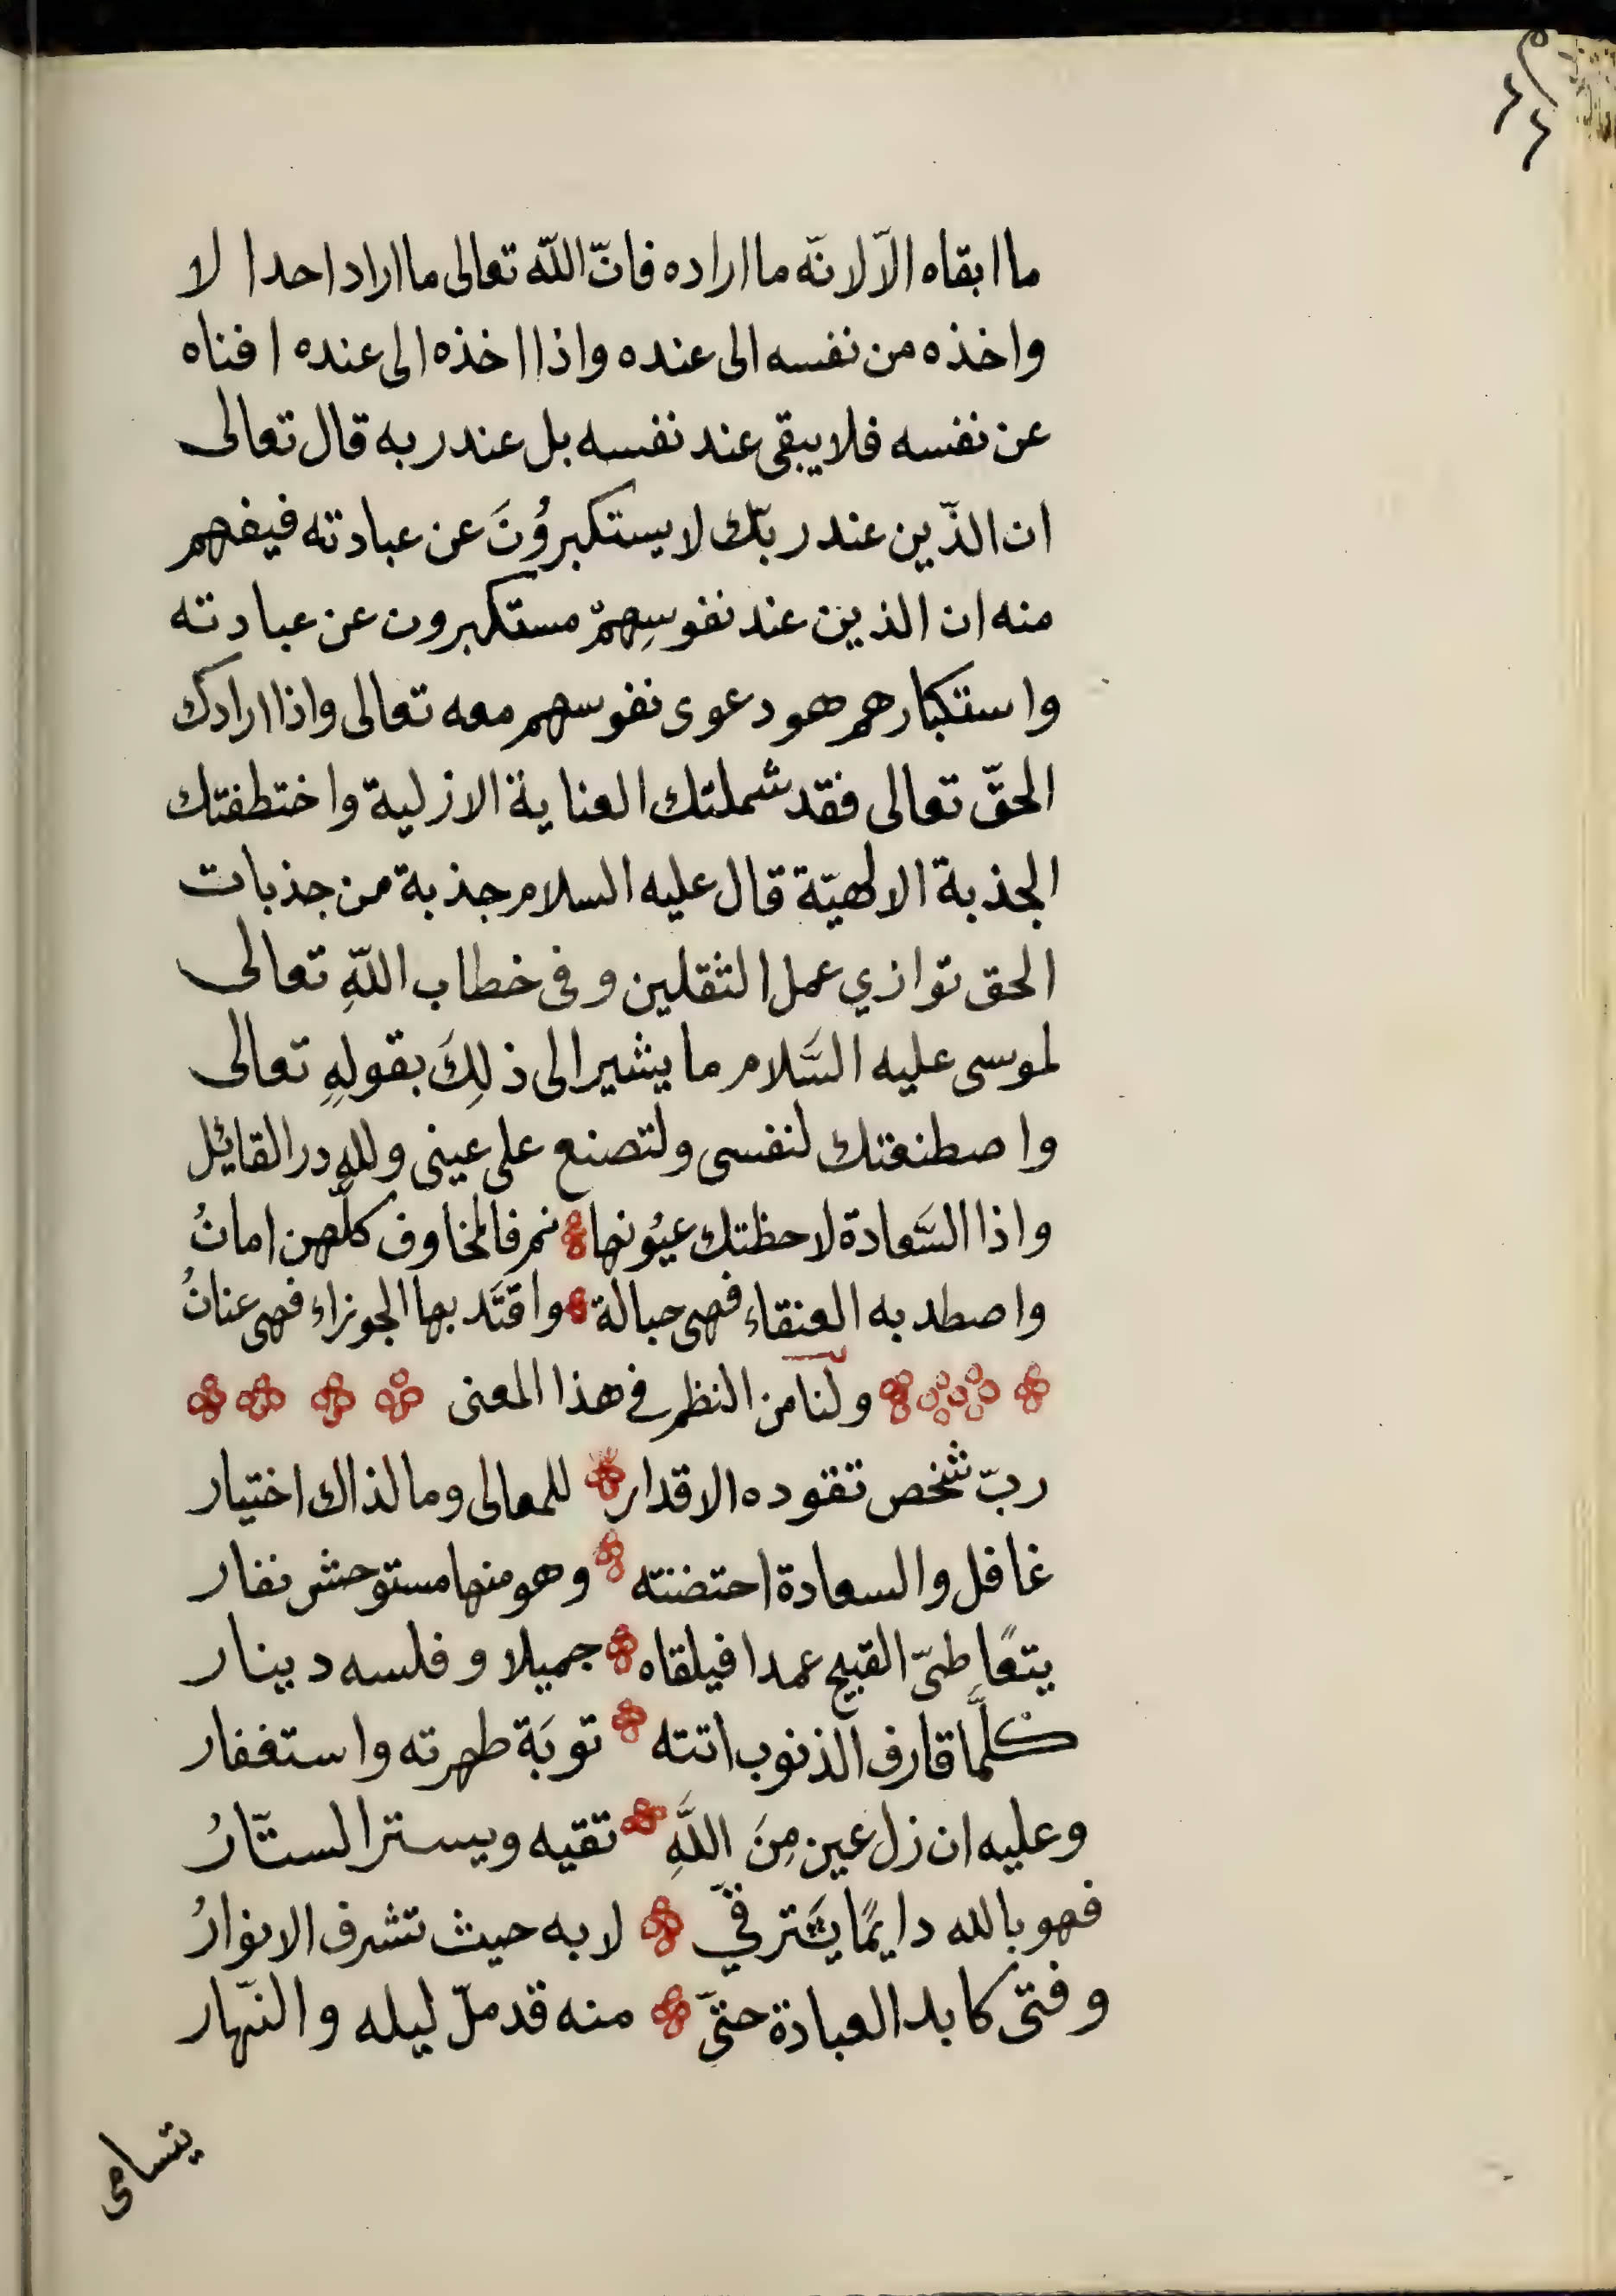 ما ابقاه الّا لانّه ما اراده فانّ اللّه تعالى ما اراد احدا لا
واخذه من نفسه الى عنده واذا اخذه الى عنده افناه
عن نفسه فلا يبقى عند نفسه بل عند ربه قال تعالى
ان الذّين عند ربّك لا يستكبروُنَ عن عبادته فيفهم
منه ان الذين عند نفوسِهمّ مستكبرون عن عبادته
واستكبارهم هو دعوى نفوسهم معه تعالى واذا ارادك
الحقّ تعالى فقد شملتك العناية الازلية واختطفتك
الجذبة الالهيّة قال عليه السلام جذبة من جذبات
الحق توازي عمل الثقلين وفى خطاب اللّهِ تعالى
لموسى عليه السَّلام ما يشير الى ذلِكَ بقولِهِ تعالى
واصطنعتك لنفسى ولتصنع على عينى وللهِ در القائِل
واذا السَّعادة لاحظتك عيُونها نم فالمخاوف كلّهن امانُ
واصطد به العنقاء فهى حبالة واقتَد بها الجوزاء فهى عنانُ
ولنا من النظم فى هذا المعنى
ربّ شخص تقوده الاقدار للمعالى وما لذاك اختيار
غافل والسعادة احتضنته وهو منها مستوحش نفار
يتعًاطىّ القبيح عمدا فيلقاه جميلا وفلسه دينار
كلَّما قارف الذنوب اتته توبَة طهرته واستغفار
وعليه ان زل عين مِنَ اللَّهِ تقيه ويستر الستّارُ
فهو بالله دايمًا يَترقىّ لا به حيث تشرف الانوارُ
وفتى كابد العبادة حتىّ منه قد ملّ ليله والنّهار